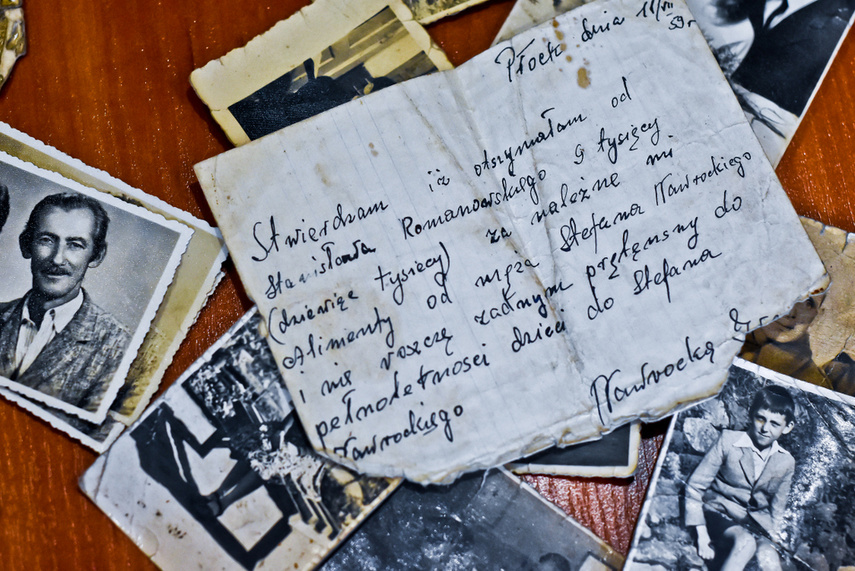 Płock dnia 11/VII
59r
Stwierdzam iż otrzymałam od
Stanisława Romanowskiego 9 tysięcy
(dziewięc tysięcy) za należne mi
Alimenty od męża Stefana Nawrockiego
i nie roszczę żadnym prętęnsny do
pełnoletnosci dzieci do Stefana
Nawrockiego
Nawrocką